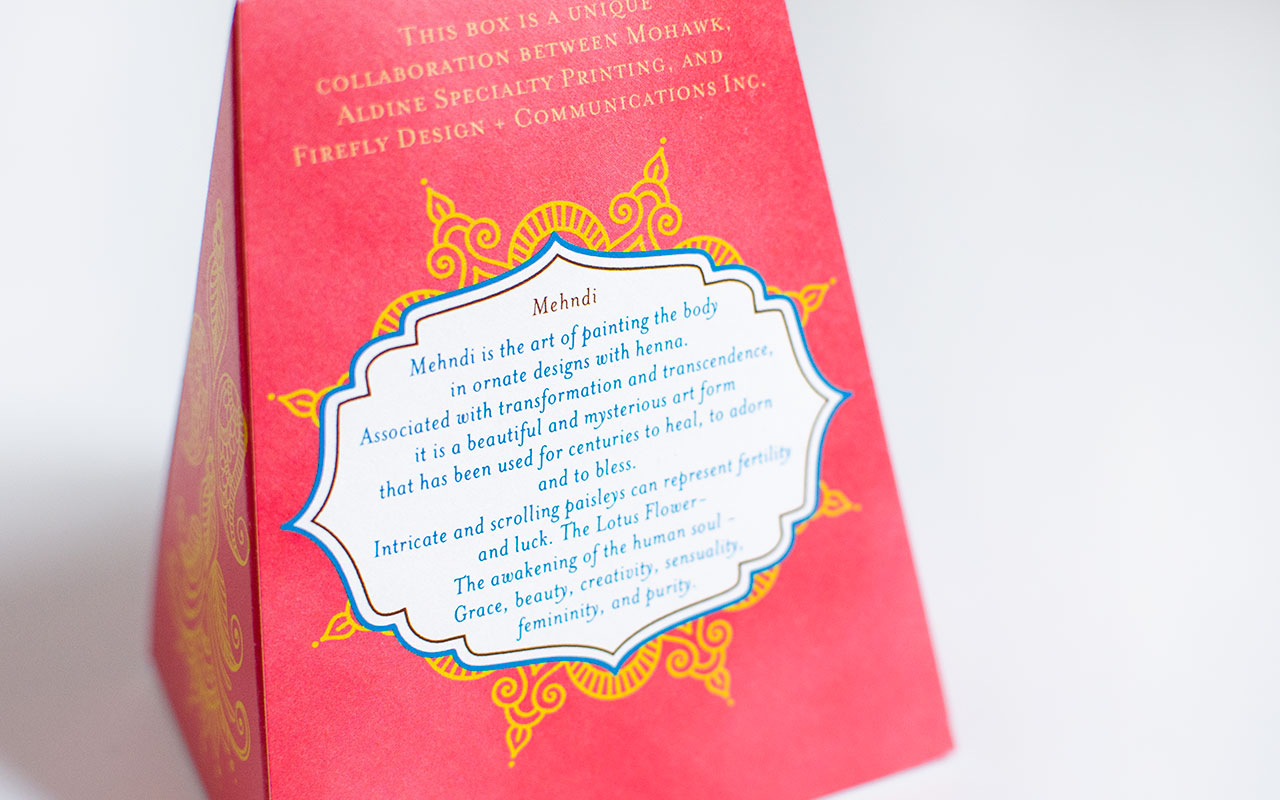 This box is a unique
collaboration between Mohawk,
Aldine Specialty Printing, and
Firefly Design + Communications Inc.
Mehndi
Mehndi is the art of painting the body
in ornate designs with henna.
Associated with transformation and transcendence,
it is a beautiful and mysterious art form
that has been used for centuries to heal, to adorn
and to bless.
Intricate and scrolling paisleys can represent fertility
and luck. The Lotus Flower–
The awakening of the human soul –
Grace, beauty, creativity, sensuality,
femininity, and purity.